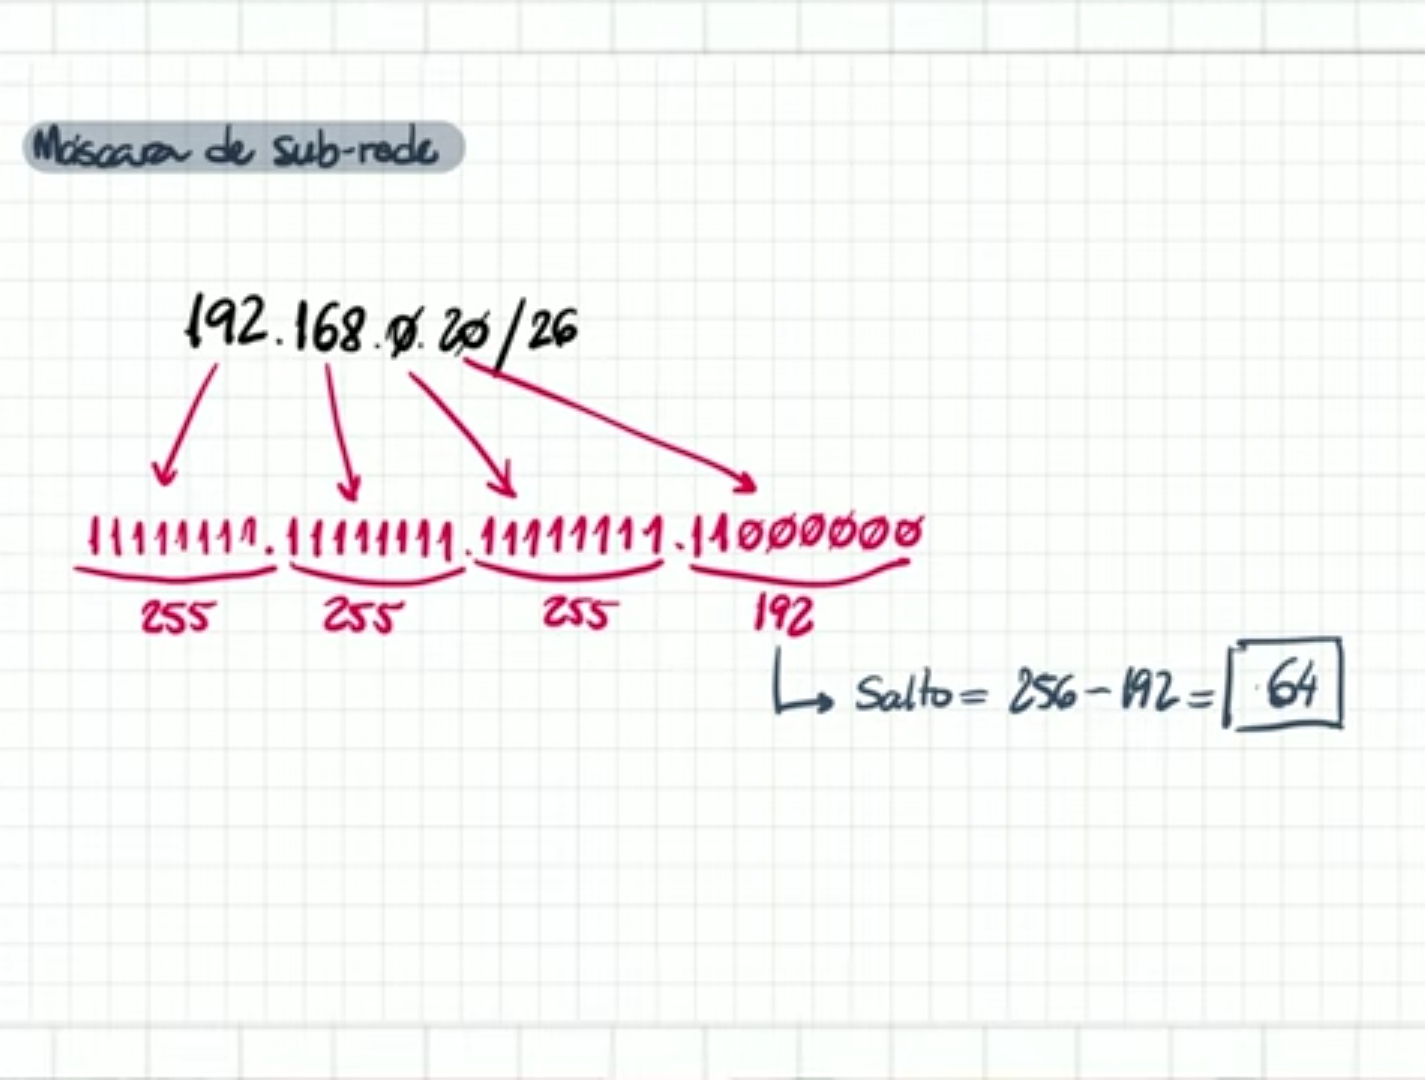 Máscara de sub-rede
192.168.0.20/26
11111111.11111111.11111111.11000000
255 255 255 192
Salto = 256 - 192 = 64